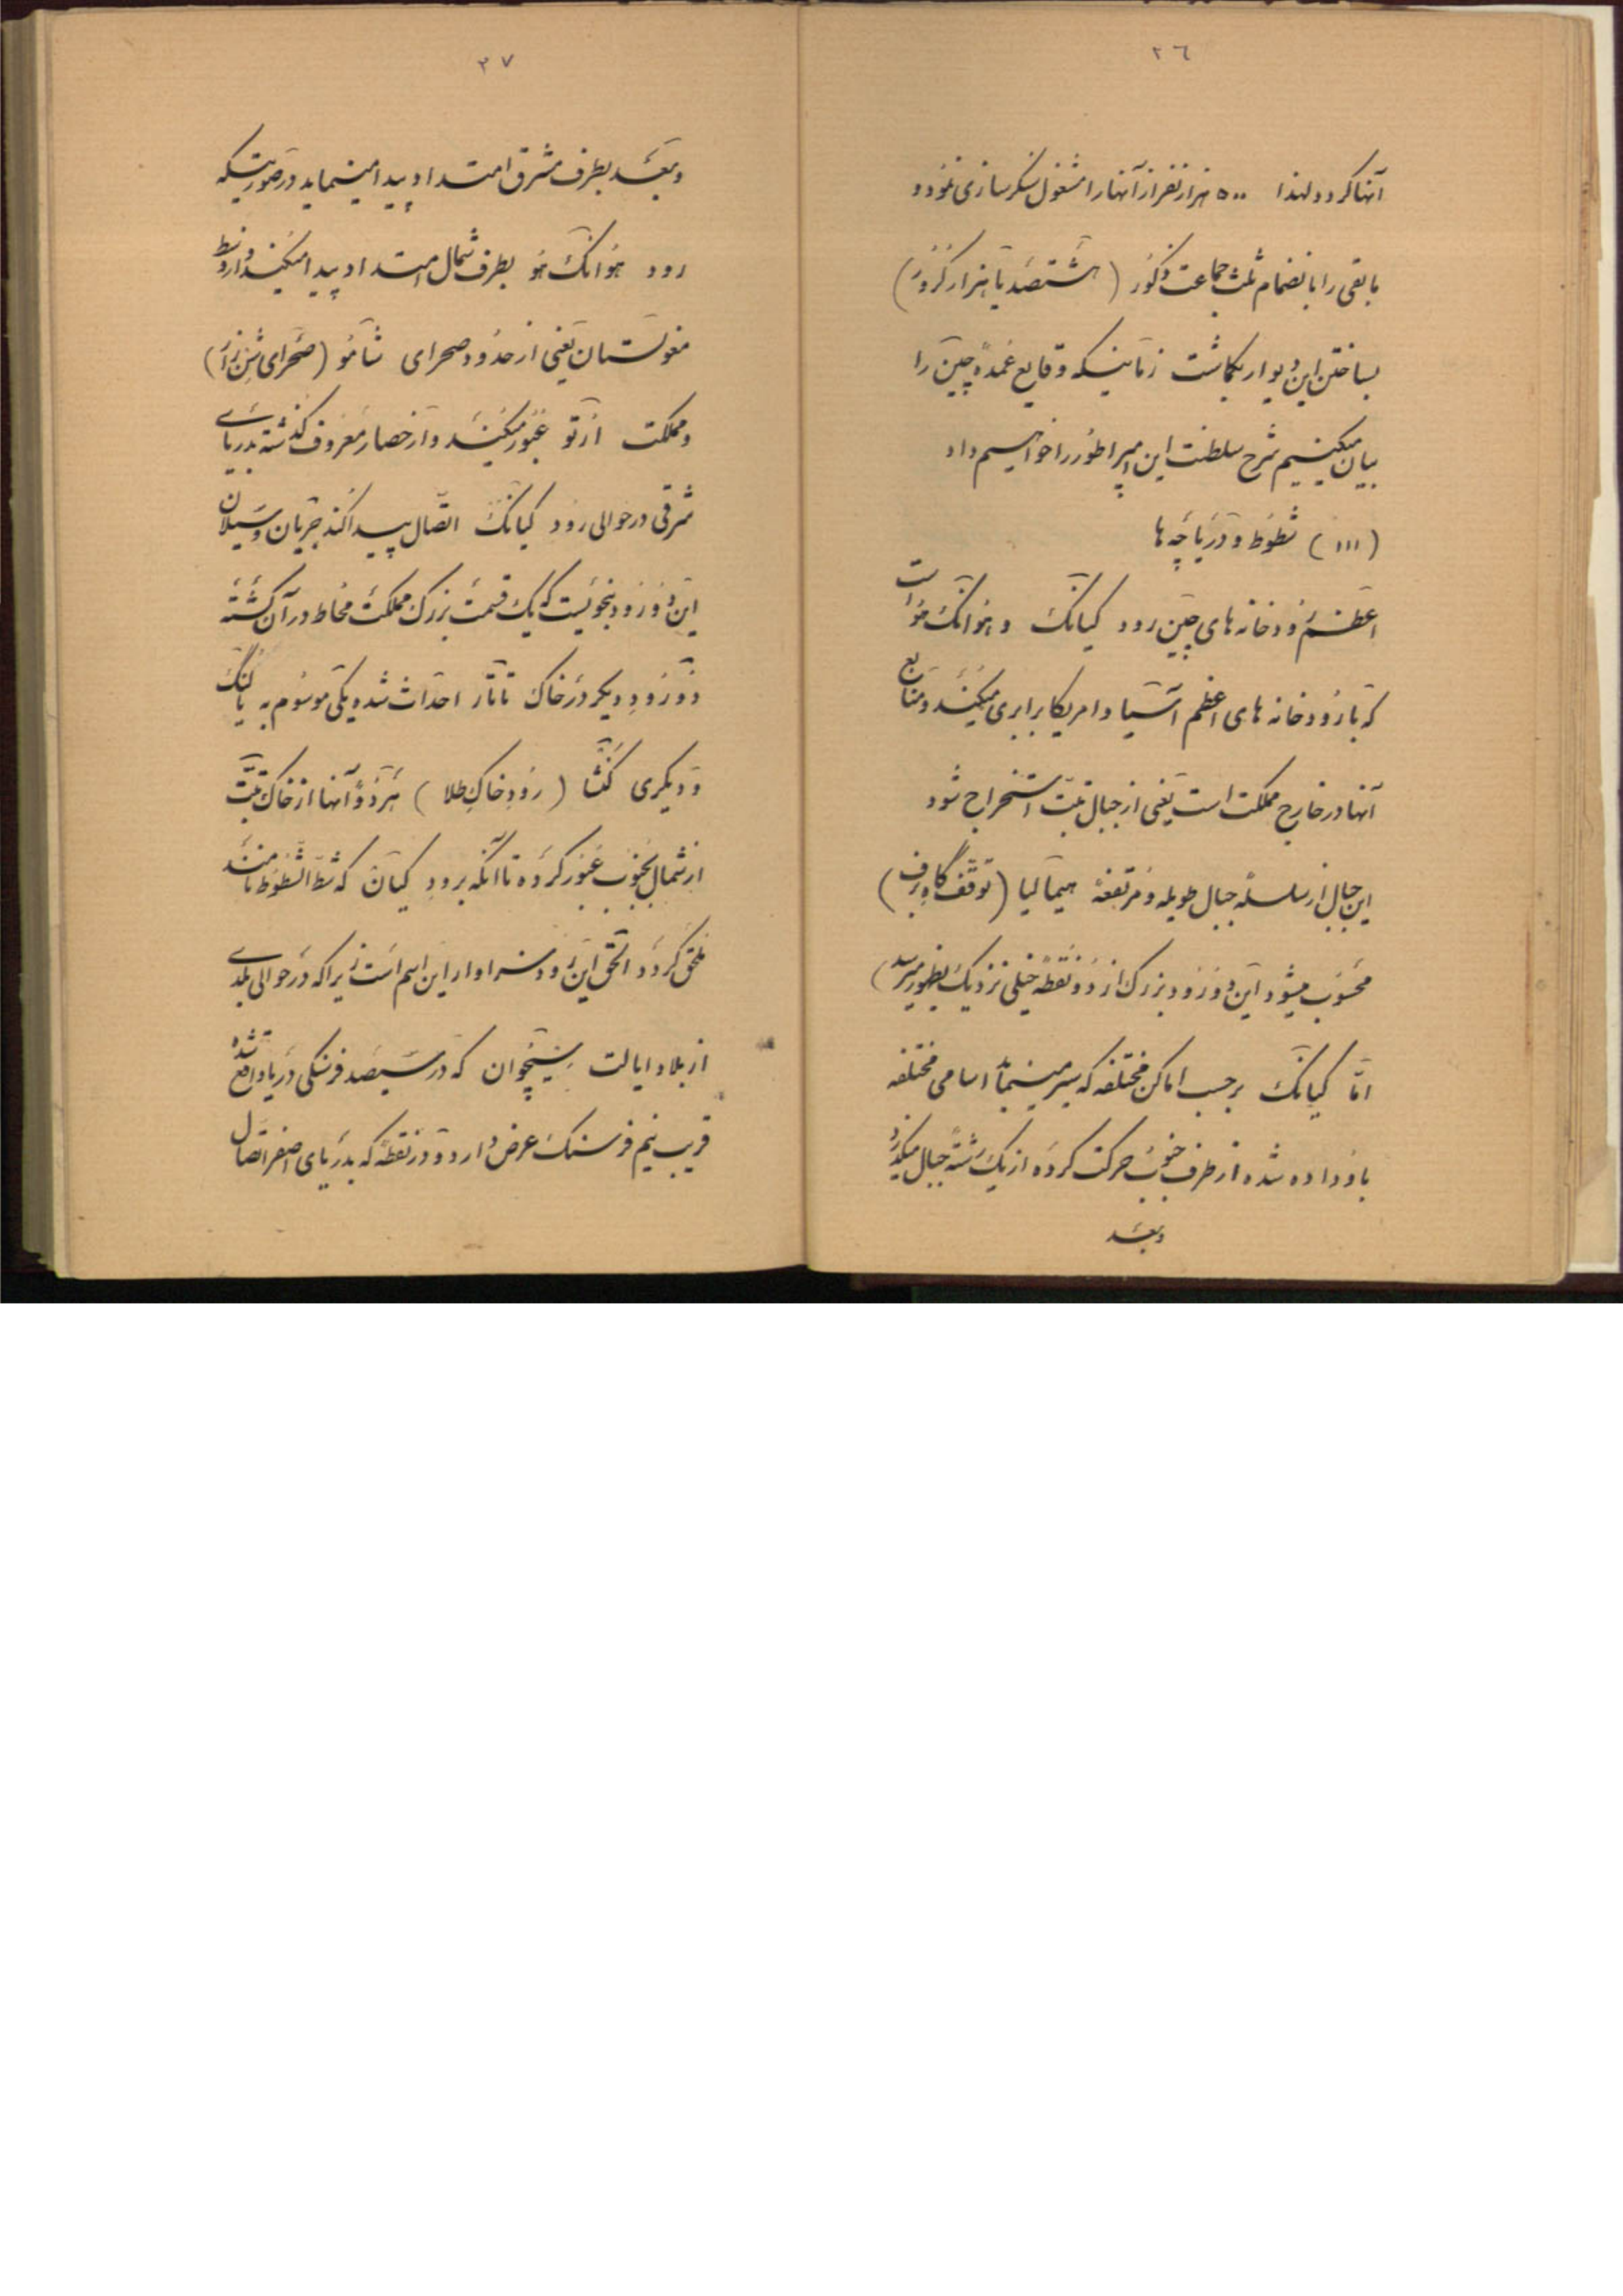 ٢٦
آنها کرد و لهذا ٥٠٠ هزار نفر از آنها را مشغول سنکر سازی نمود و
مابقی را بانضمام ثلث جماعت ذکور (هشتصد یا هزار کرور)
بساختن این دیوار بکماشت زمانیکه وقایع عمدهٔ چین را
بیان میکنیم شرح سلطنت این امپراطور را خواهیم داد
(١١١) شطوط و دریاچه ها
اعظم رودخانه های چین رود کیانک و هوانک هو است
که با رودخانه های اعظم آسیا و امریکا برابری میکنند و منابع
آنها در خارج مملکت است یعنی از جبال تبت استخراج شود
این جبال از سلسلهٔ جبال طویله و مرتفعهٔ هیمالیا (توقف گاه برف)
محسوب میشود این دو رود بزرک از دو نقطهٔ خیلی نزدیک بظهور میرسد)
امّا کیانک بر حسب اماکن مختلفه که سیر مینماید اسامی مختلفه
باو داده شده از طرف جنوب حرکت کرده از یک رشتهٔ جبال میکذرد
وبعد
٢٧
وبعد بطرف مشرق امتداد پیدا مینماید در صورتیکه
رود هوانک هو بطرف شمال امتداد پیدا میکند و از وسط
مغولستان یعنی از حدود صحرای شامو (صحرای شن زار)
و مملکت ارتو عبور میکند و از حصار معروف کذشته بدریای
شرقی در حوالی رود کیانک اتّصال پیدا کند جریان و سیلان
این دو رود بنحویست که یک قسمت بزرک مملکت محاط در آن کشته
دو رود دیکر در خاک تاتار احداث شده یکی موسوم به یالنک
و دیکری کنشا (رود خاک طلا) هر دو آنها از خاک تبت
از شمال بجنوب عبور کرده تا آنکه برود کیان که شطّ الشطوط نامند
ملحق کردد الحق این رود سزاوار این اسم است زیرا که در حوالی بلدی
از بلاد ایالت سیچوان که در سیصد فرسنکی دریا واقع شده
قریب نیم فرسنک عرض دارد و در نقطهٔ که بدریای اصفر اتصال